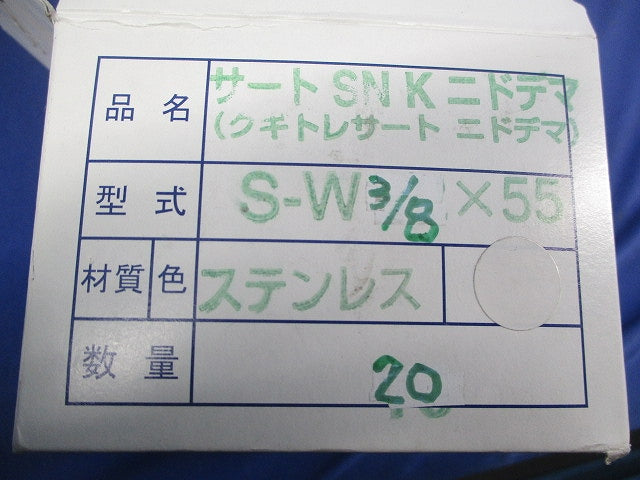 品名 サートSNKニドデマ
(クギトレサート ニドデマ)
型式 S-W3/8×55
材質 色 ステンレス
数量 20